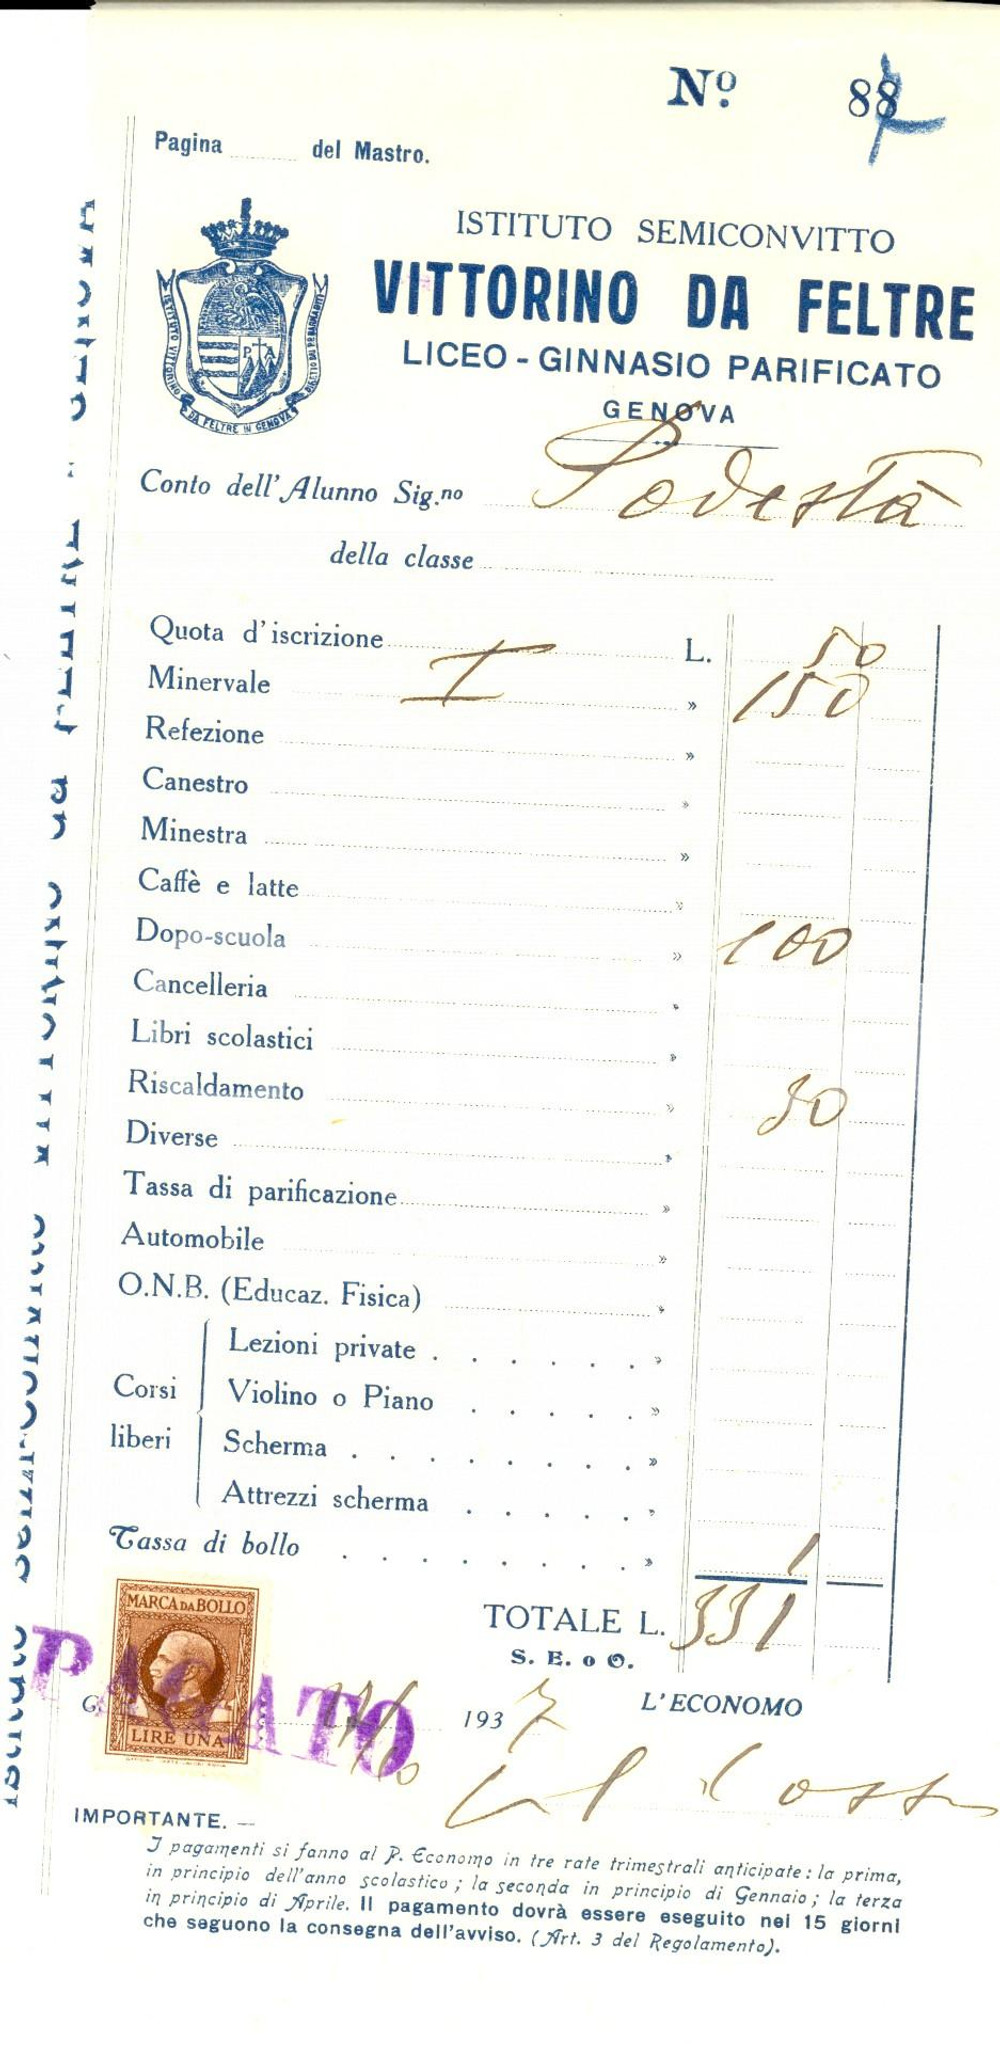 Nº 88
Pagina ........ del Mastro.
ISTITUTO SEMICONVITTO
VITTORINO DA FELTRE
LICEO - GINNASIO PARIFICATO
GENOVA
P A
ISTITUTO VITTORINO
DA FELTRE IN GENOVA
Conto dell'Alunno Sig.no Podestà
della classe
Quota d'iscrizione L. 50
Minervale I » 150
Refezione »
Canestro »
Minestra »
Caffè e latte »
Dopo-scuola » 100
Cancelleria »
Libri scolastici »
Riscaldamento » 30
Diverse »
Tassa di parificazione »
Automobile »
O.N.B. (Educaz. Fisica) »
Corsi liberi
Lezioni private . . . . . . »
Violino o Piano . . . . . »
Scherma . . . . . . . . »
Attrezzi scherma . . . . . »
Tassa di bollo . . . . . . . . » 1
TOTALE L. 331
S. E. o O.
MARCA DA BOLLO
LIRE UNA
PAGATO
1937
L'ECONOMO
IMPORTANTE. —
I pagamenti si fanno al P. Economo in tre rate trimestrali anticipate: la prima,
in principio dell'anno scolastico; la seconda in principio di Gennaio; la terza
in principio di Aprile. Il pagamento dovrà essere eseguito nei 15 giorni
che seguono la consegna dell'avviso. (Art. 3 del Regolamento).